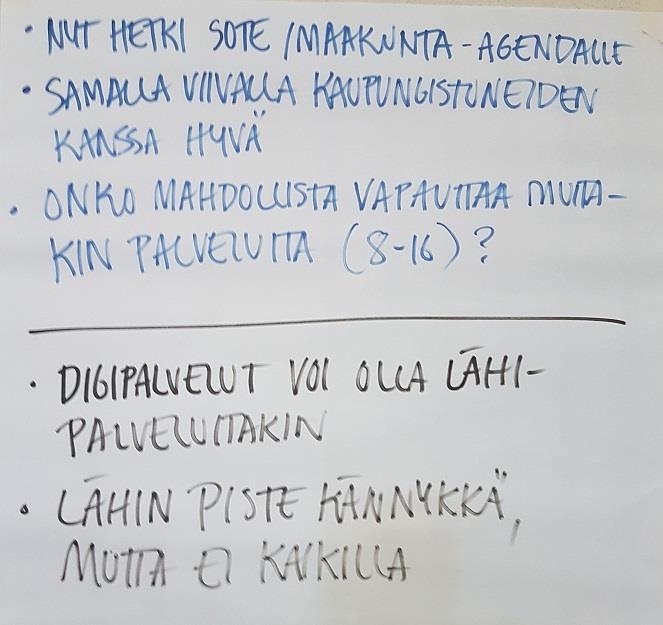 • NYT HETKI SOTE/MAAKUNTA-AGENDALLE
• SAMALLA VIIVALLA KAUPUNGISTUNEIDEN
KANSSA HYVÄ
• ONKO MAHDOLLISTA VAPAUTTAA MUITA-
KIN PALVELUITA (8-16)?
• DIGIPALVELUT VOI OLLA LÄHI-
PALVELUITAKIN
• LÄHIN PISTE KÄNNYKKÄ,
MUTTA EI KAIKILLA